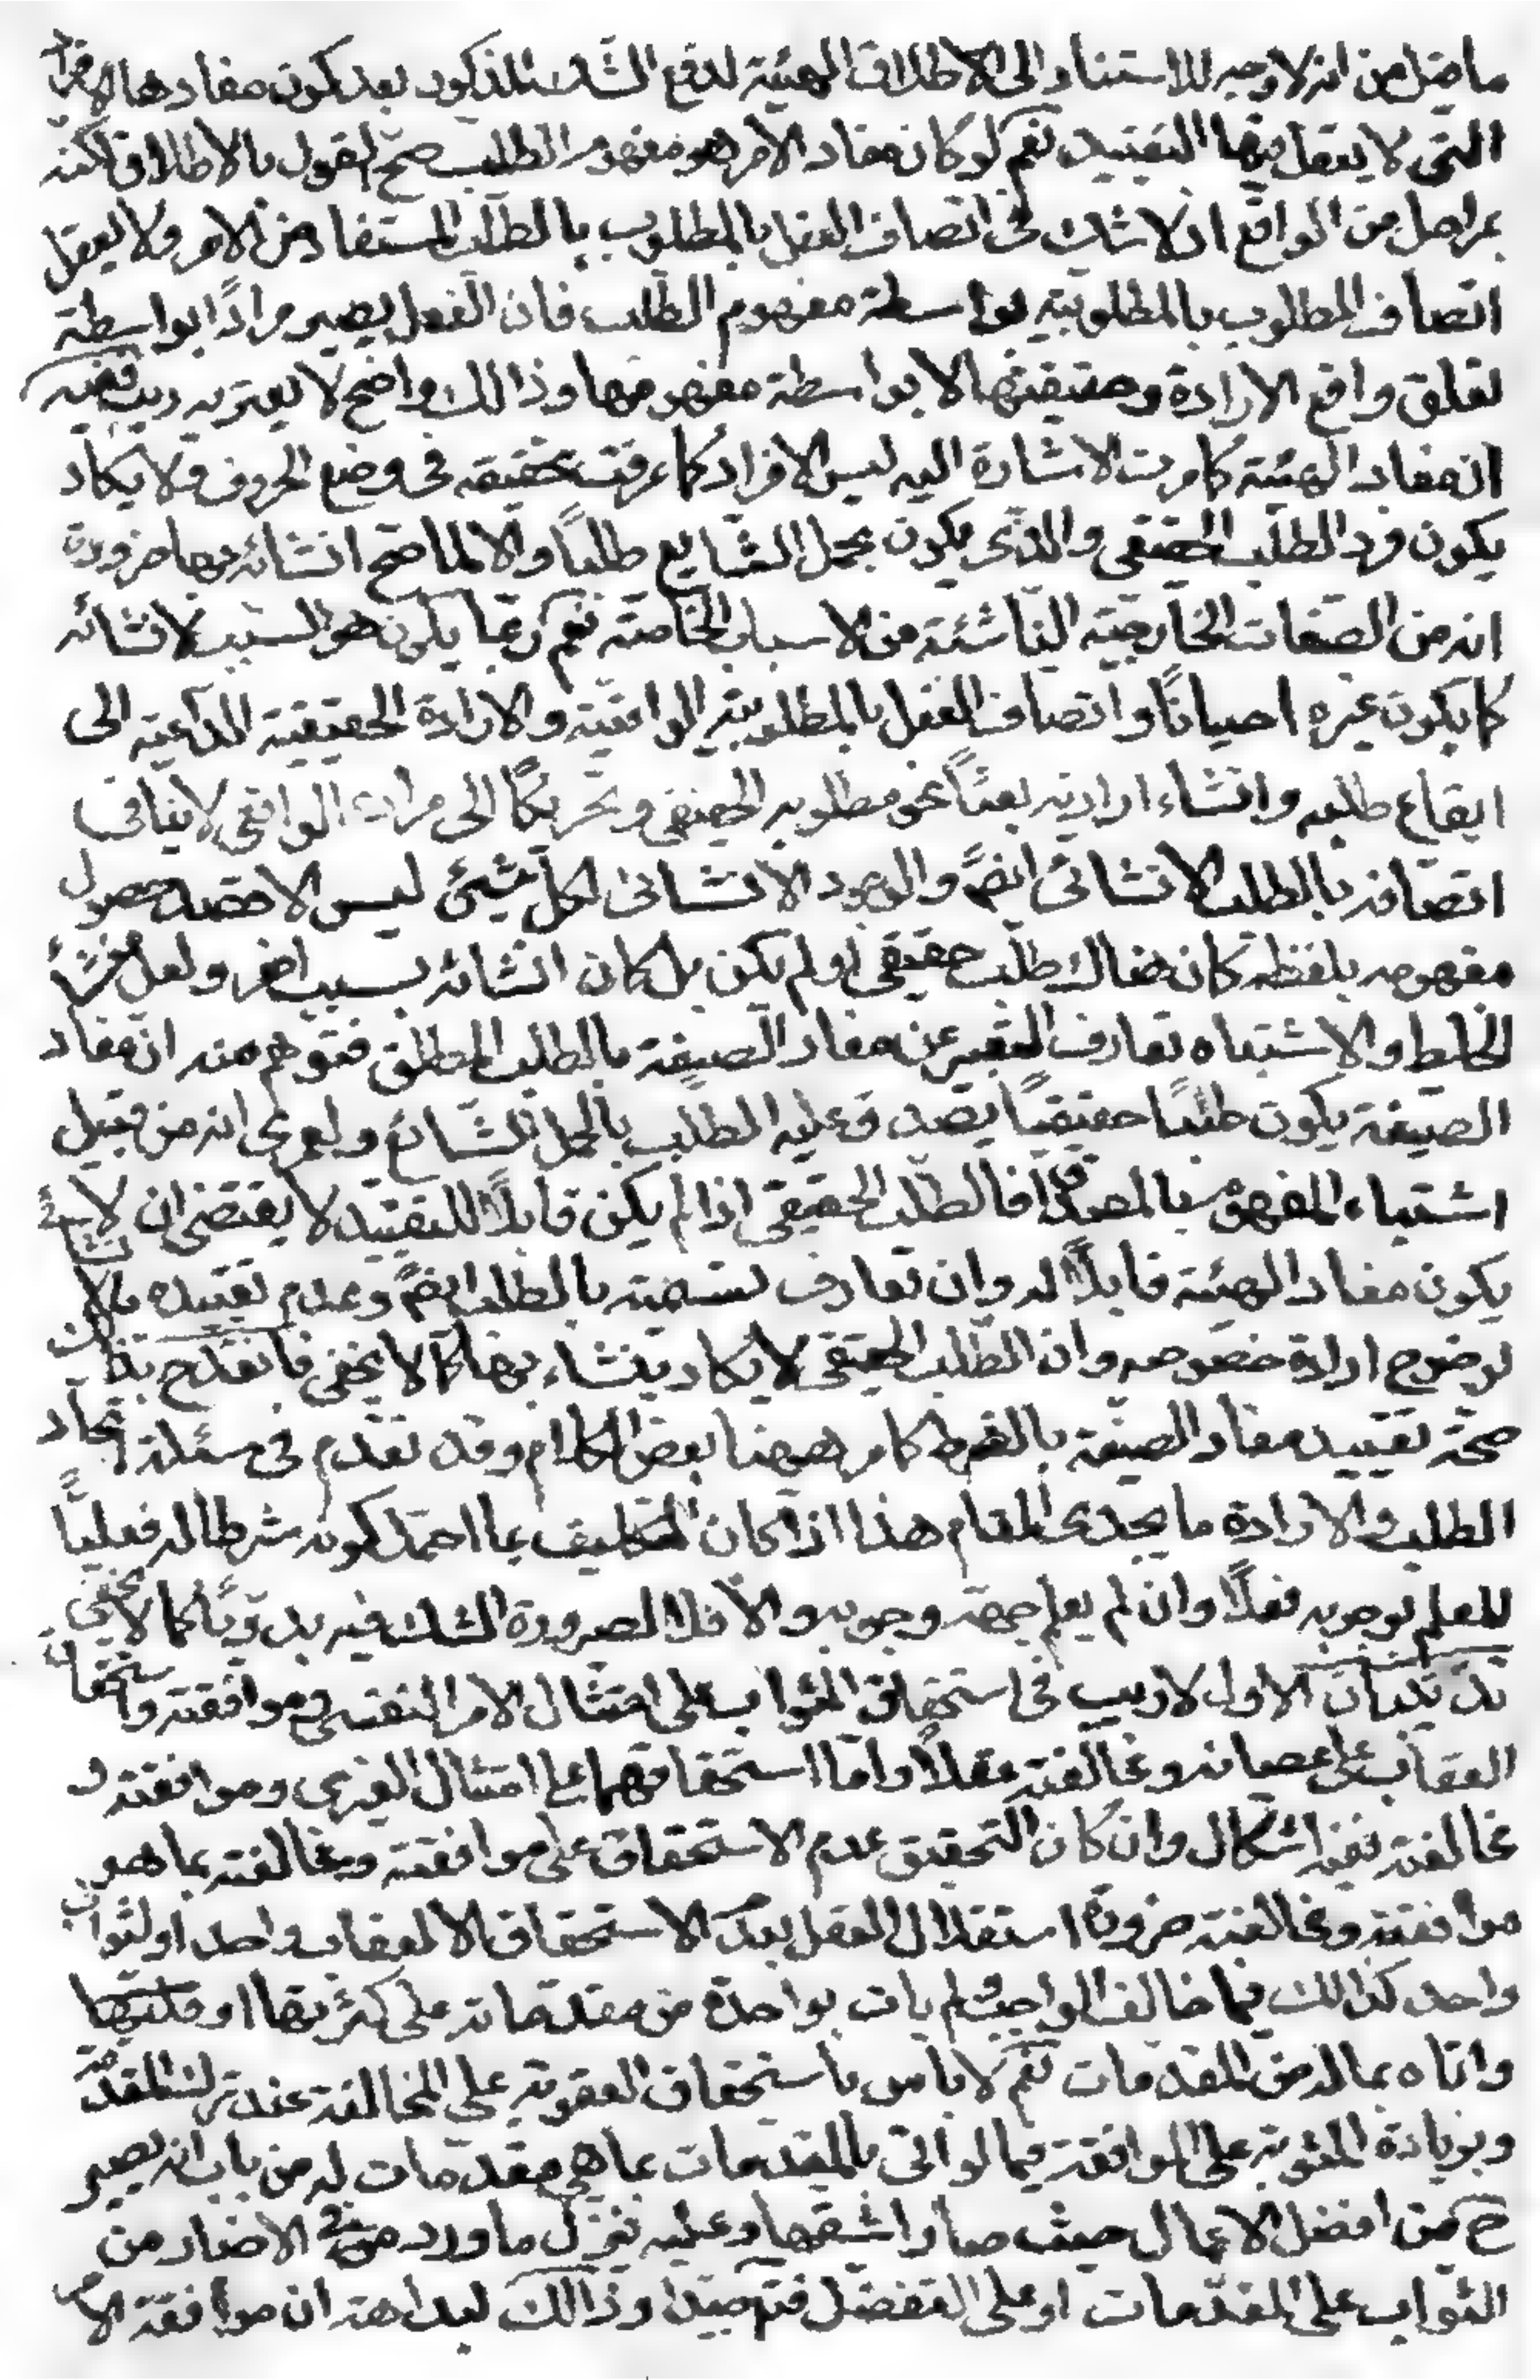 ما قيل من انه لا وجه للاستناد الى الاطلاق الهيئة لدفع الشك المذكور بعد كون مفادها الافراد
التى لا يعقل فيها التقييد نعم لو كان مفاد الامر هو مفهوم الطلب صح القول بالاطلاق لكنه
بمراحل من الواقع اذ لا شك فى اتصاف الفعل بالمطلوب بالطلب المستفاد من الامر ولا يعقل
اتصاف المطلوب بالمطلوبية بواسطة مفهوم الطلب فان الفعل يصير مرادًا بواسطة
تعلق واقع الارادة وحقيقتها لا بواسطة مفهومها وذالك واضح لا يعتريه ريب ففيه
ان مفاد الهيئة كا مرت الاشارة اليه ليس الافراد كما عرفت تحقيقه فى وضع الحروف ولا يكاد
يكون فرد الطلب الحقيقى والذى يكون بحمل الشايع طلبًا والا لما صح انشائه بها ضرورة
انه من الصفات الخارجية الناشئة من الاسباب الخاصة نعم ربما يكون هو السبب لانشائه
كما يكون غيره احيانًا واتصاف الفعل بالمطلوبية الواقعية والارادة الحقيقية الداعية الى
ايقاع طلبه وانشاء ارادته بعثًا نحو مطلوبه الحقيقى وتحريكًا الى مراده الواقعى لا ينافى
اتصافه بالطلب الانشائى ايضً والوجود الانشائى لكل شيئ ليس الا قصد حصول
مفهومه بلفظه كان هناك طلب حقيقى او لم يكن بل كان انشائه بسبب اخر ولعل منشأ
الخلط والاشتباه تعارف التعبير عن مفاد الصيغة بالطلب المطلق فتوهم منه ان مفاد
الصيغة يكون طلبًا حقيقيًا يصدق عليه الطلب بالحمل الشائع ولعمرى انه من قبيل
اشتباه المفهوم بالمصداق فالطلب الحقيقى اذا لم يكن قابلًا للتقييد لا يقتضى ان لا
يكون مفاد الهيئة قابلًا له وان تعارف تسميته بالطلب ايضً وعدم تقييده بالانشائى
لوضوح ارادة خصوصه وان الطلب الحقيقى لا يكاد ينشاء بها كما لا يخفى فانقدح بذلك
صحة تقييد مفاد الصيغة بالشرط كا مر هيهنا بعض الكلام وقد تقدم فى مسئلة اتحاد
الطلب والارادة ما يجدى المقام هذا اذا كان التكليف بما احتمل كونه شرطا له فعليًا
للعلم بوجوبه فعلًا وان لم يعلم جهة وجوبه والا فلا لصيرورة الشك فيه بدويًا كما لا يخفى
تذنيبان الاول لا ريب فى استحقاق الثواب على امتثال الامر النفسى وموافقته واستحقاق
العقاب على عصيانه ومخالفته عقلًا واما استحقاقهما على امتثال الغيرى وموافقته و
مخالفته ففيه اشكال وان كان التحقيق عدم الاستحقاق على موافقته ومخالفته بما هو
موافقته ومخالفته ضرورة استقلال العقل بعدم الاستحقاق الا لعقاب واحد او لثواب
واحد كذالك فيما خالف الواجب ولم يات بواحدة من مقدماته على كثرتها او
واتاه بما له من المقدمات نعم لا باس باستحقاق العقوبة على المخالفة عند ترك المقدمة
وبزيادة المثوبة على الموافقة فيما لو اتى بالمقدمات بما هى مقدمات له من باب انه يصير
ح من افضل الاعمال حيث صار اشقها وعليه نزل ما ورد فى الاخبار من
الثواب على المقدمات او على التفضل فتم جيدا وذالك لبداهة ان موافقة الامر